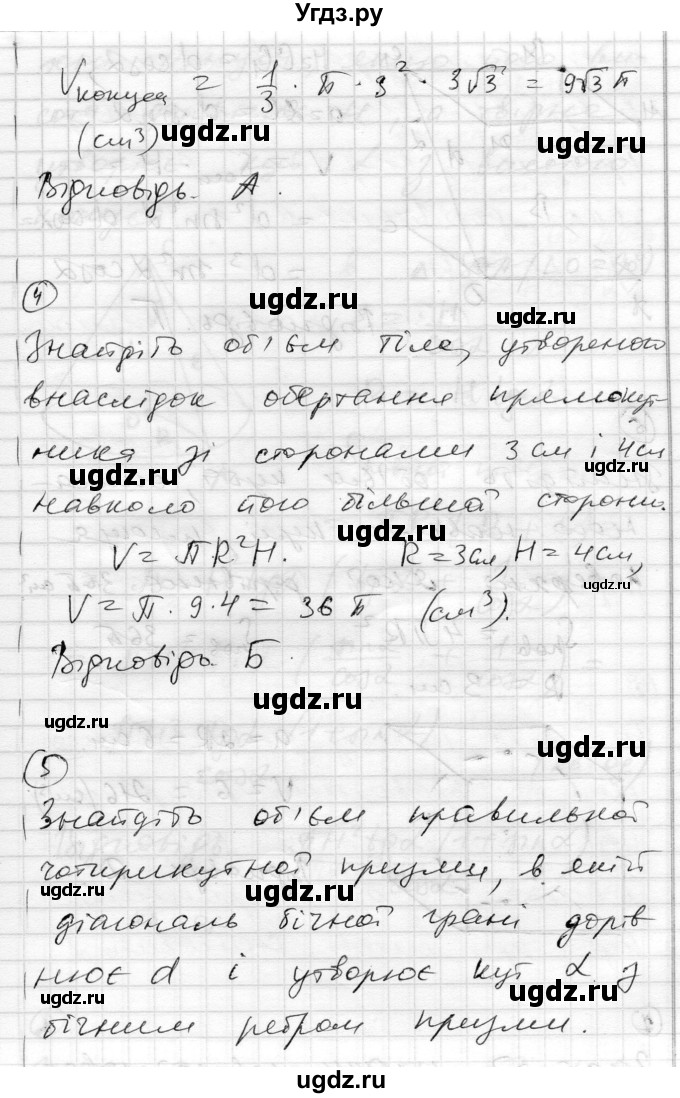 Угдз.ру
Vконуса = 1/3 · π · 3² · 3√3 = 9√3 π
(см³) ugdz.ru
ugdz.ru
Відповідь. А.
4
ugdz.ru
ugdz.ru
Знайдіть об'єм тіла, утвореного
внаслідок обертання прямокут-
ника зі сторонами 3 см і 4 см
ugdz.ru ugdz.ru
навколо його більшої сторони.
ugdz.ru
V = πR²H. R = 3 см, H = 4 см,
ugdz.ru
V = π · 9 · 4 = 36 π (см³).
Відповідь. Б.
ugdz.ru
ugdz.ru
5
ugdz.ru
Знайдіть об'єм правильної
чотирикутної призми, в якій
ugdz.ru ugdz.ru ugdz.ru
діагональ бічної грані дорів
нює d і утворює кут α з
ugdz.ru ugdz.ru
бічним ребром призми.
ugdz.ru